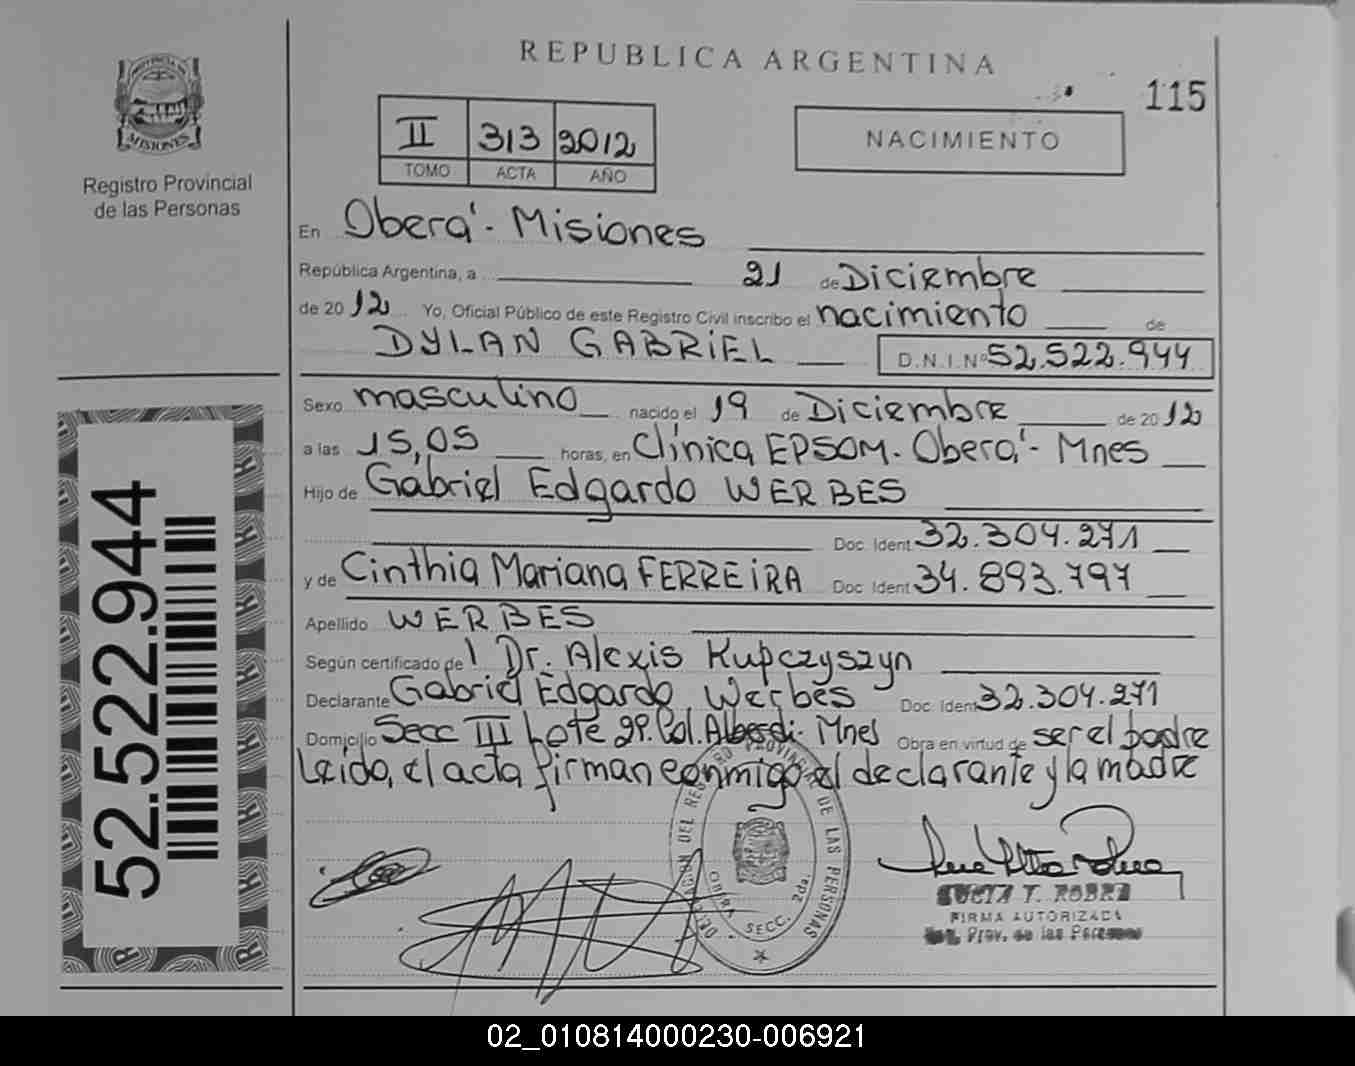 REPUBLICA ARGENTINA
115
PROVINCIA DE
MISIONES
Registro Provincial
de las Personas
II 313 2012
TOMO ACTA AÑO
NACIMIENTO
En Oberá - Misiones
República Argentina, a 21 de Diciembre
de 2012 Yo, Oficial Público de este Registro Civil inscribo el nacimiento de
DYLAN GABRIEL D.N.I. Nº 52.522.944
Sexo masculino nacido el 19 de Diciembre de 2012
a las 15,05 horas, en Clínica EPSOM - Oberá - Mnes
Hijo de Gabriel Edgardo WERBES
Doc. Ident 32.304.271
y de Cinthia Mariana FERREIRA Doc. Ident 34.893.797
Apellido WERBES
Según certificado de Dr. Alexis Kupczyszyn
Declarante Gabriel Edgardo Werbes Doc. Ident 32.304.271
Domicilio Secc III Lote Col. Alberdi - Mnes Obra en virtud de ser el padre
Leída, el acta firman conmigo el declarante y la madre
52.522.944
PROVINCIAL DE LAS PERSONAS
OBERA
SECC. 2da.
FIRMA AUTORIZADA
Prov. de las Personas
02_010814000230-006921